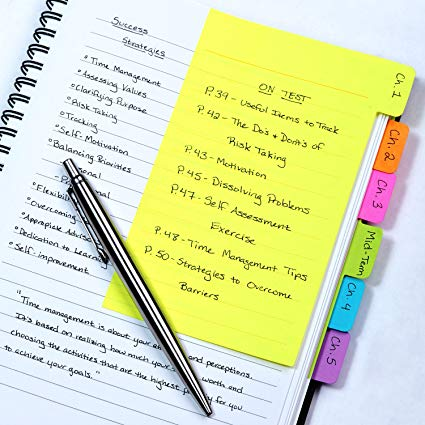 Success
Strategies
Time Management
Assessing Values
Clarifying Purpose
Risk Taking
Tracking
Self-Motivation
Balancing Priorities
Personal
Flexibility
Overcoming
Dedication to Learning
Self-improvement
"Time management is about your and perceptions.
It's based on realizing how much your worth and
choosing the activities that are the highest for you
to achieve your goals."
ON TEST
P.39 - Useful Items to Track
P.42 - The Do's & Dont's of
Risk Taking
P.43 - Motivation
P.45 - Dissolving Problems
P.47 - Self Assessment
Exercise
P.48 - Time Management Tips
P.50 - Strategies to Overcome
Barriers
Ch.1
Ch.2
Ch.3
Mid-Term
Ch.4
Ch.5